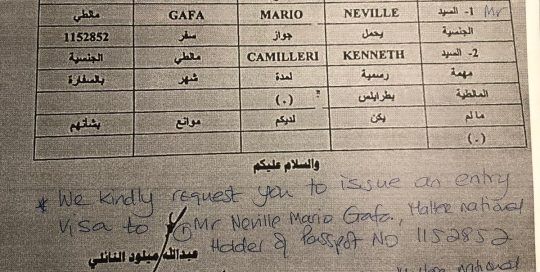 Mr 1- السيد NEVILLE MARIO GAFA مالطي
الجنسية يحمل جواز سفر 1152852
2- السيد KENNETH CAMILLERI مالطي الجنسية
مهمة رسمية لمدة شهر بالسفارة
المالطية بطرابلس (.)
مالم يكن لديكم موانع بشأنهم
(.)
والسلام عليكم
* We kindly request you to issue an entry
visa to ① Mr Neville Mario Gafa, Maltese national
Holder of Passport No 1152852
عبدالله ميلود النائلي
national